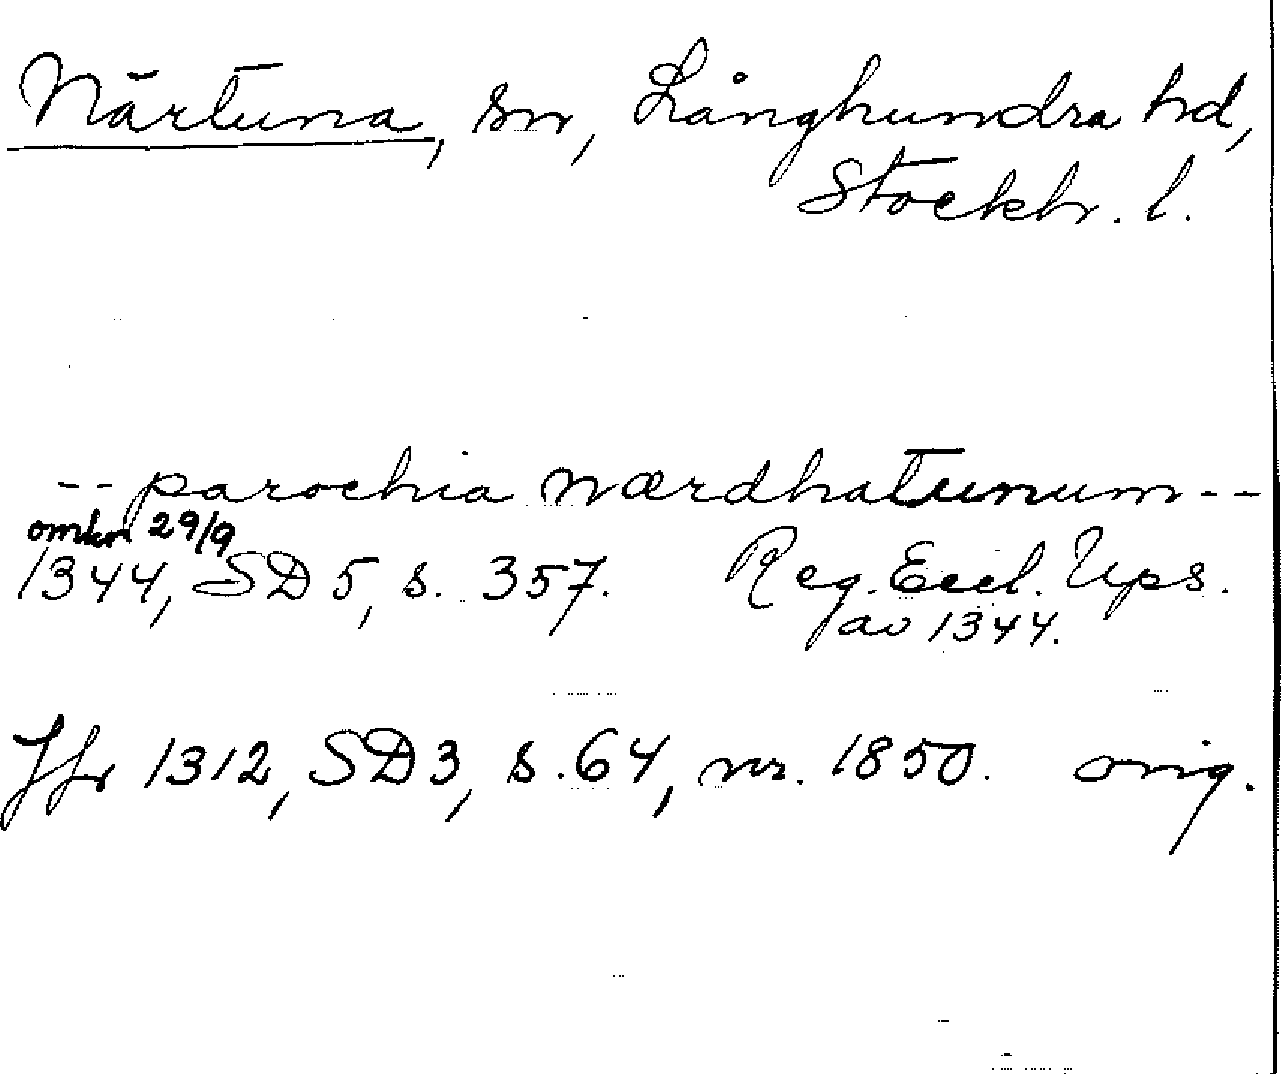 Närtuna, sn, Långhundra hd,
Stockh. l.
-- parochia nærdhatunum --
omkr 29/9
1344, SD 5, s. 357. Reg. Eccl. Ups.
av 1344.
Jfr 1312, SD 3, s. 64, nr. 1850. orig.